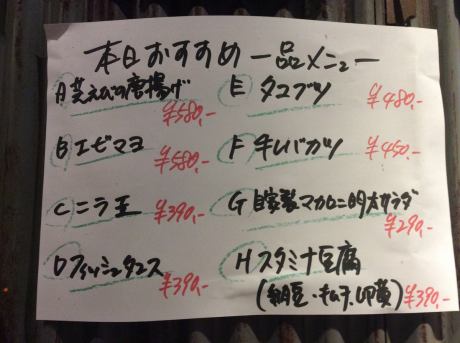 本日おすすめ一品メニュー
A 芝えびの唐揚げ
¥580,-
B エビマヨ
¥580,-
C ニラ玉 ¥390,-
D フィッシュタコス
¥390,-
E タコブツ
¥480,-
F 牛レバカツ
¥450,-
G 自家製マカロニ明太サラダ
¥290,-
H スタミナ豆腐
(納豆・キムチ・卵黄) ¥390,-